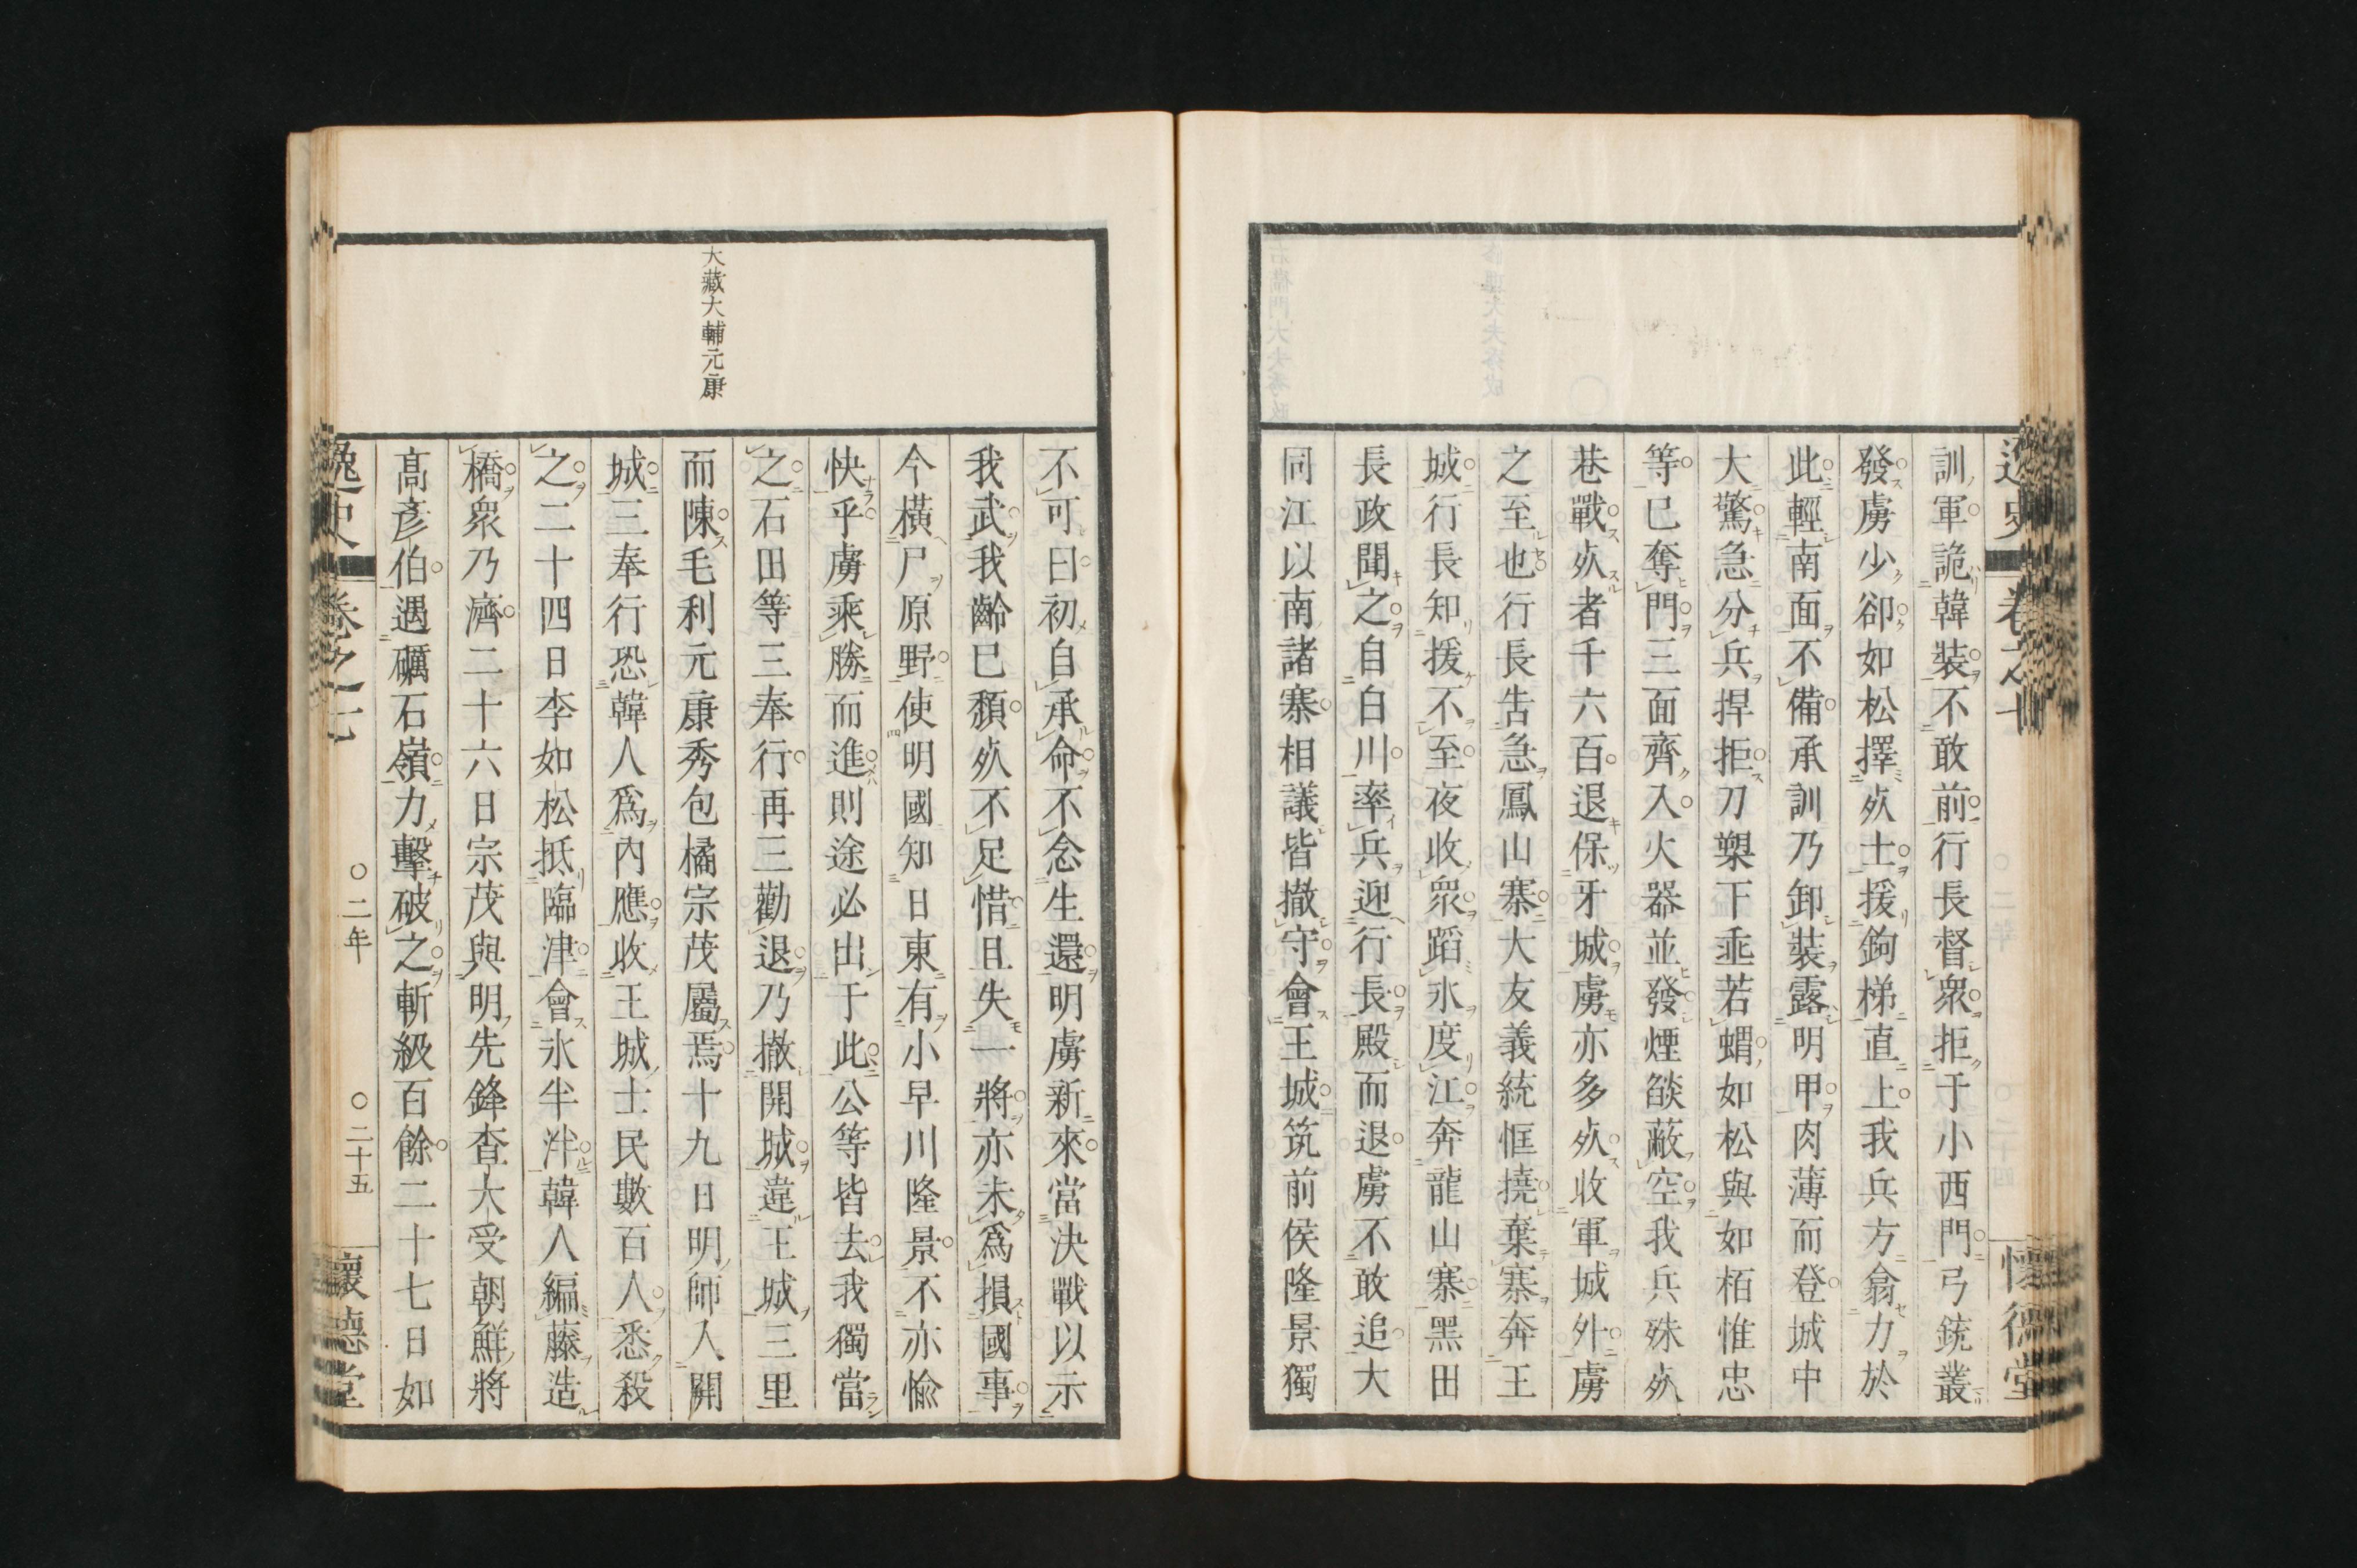 訓軍詭韓裝不敢前行長督衆拒于小西門弓銃叢
發虜少卻如松擇㱙士援鉤梯直上我兵方翕力於
此輕南面不備承訓乃卸裝露明甲肉薄而登城中
大驚急分兵捍拒刀槊下垂若蝟如松與如栢惟忠
等已奪門三面齊入火器並發煙燄蔽空我兵殊㱙
巷戰㱙者千六百退保牙城虜亦多㱙收軍城外虜
之至也行長告急鳳山寨大友義統恇撓棄寨奔王
城行長知援不至夜收衆蹈氷度江奔龍山寨黑田
長政聞之自白川率兵迎行長殿而退虜不敢追大
同江以南諸寨相議皆撤守會王城筑前侯隆景獨
不可曰初自承命不念生還明虜新來當決戰以示
我武我齡已頽㱙不足惜且失一將亦未爲損國事
今橫尸原野使明國知日東有小早川隆景不亦愉
快乎虜乘勝而進則途必出于此公等皆去我獨當
之石田等三奉行再三勸退乃撤開城違王城三里
大藏大輔元康
而陳毛利元康秀包橘宗茂屬焉十九日明師入開
城三奉行恐韓人爲內應收王城士民數百人悉殺
之二十四日李如松抵臨津會氷半泮韓人編藤造
橋衆乃濟二十六日宗茂與明先鋒査大受朝鮮將
高彥伯遇礪石嶺力擊破之斬級百餘二十七日如
逸史 卷之七 〇二年 〇二十五 懷德堂